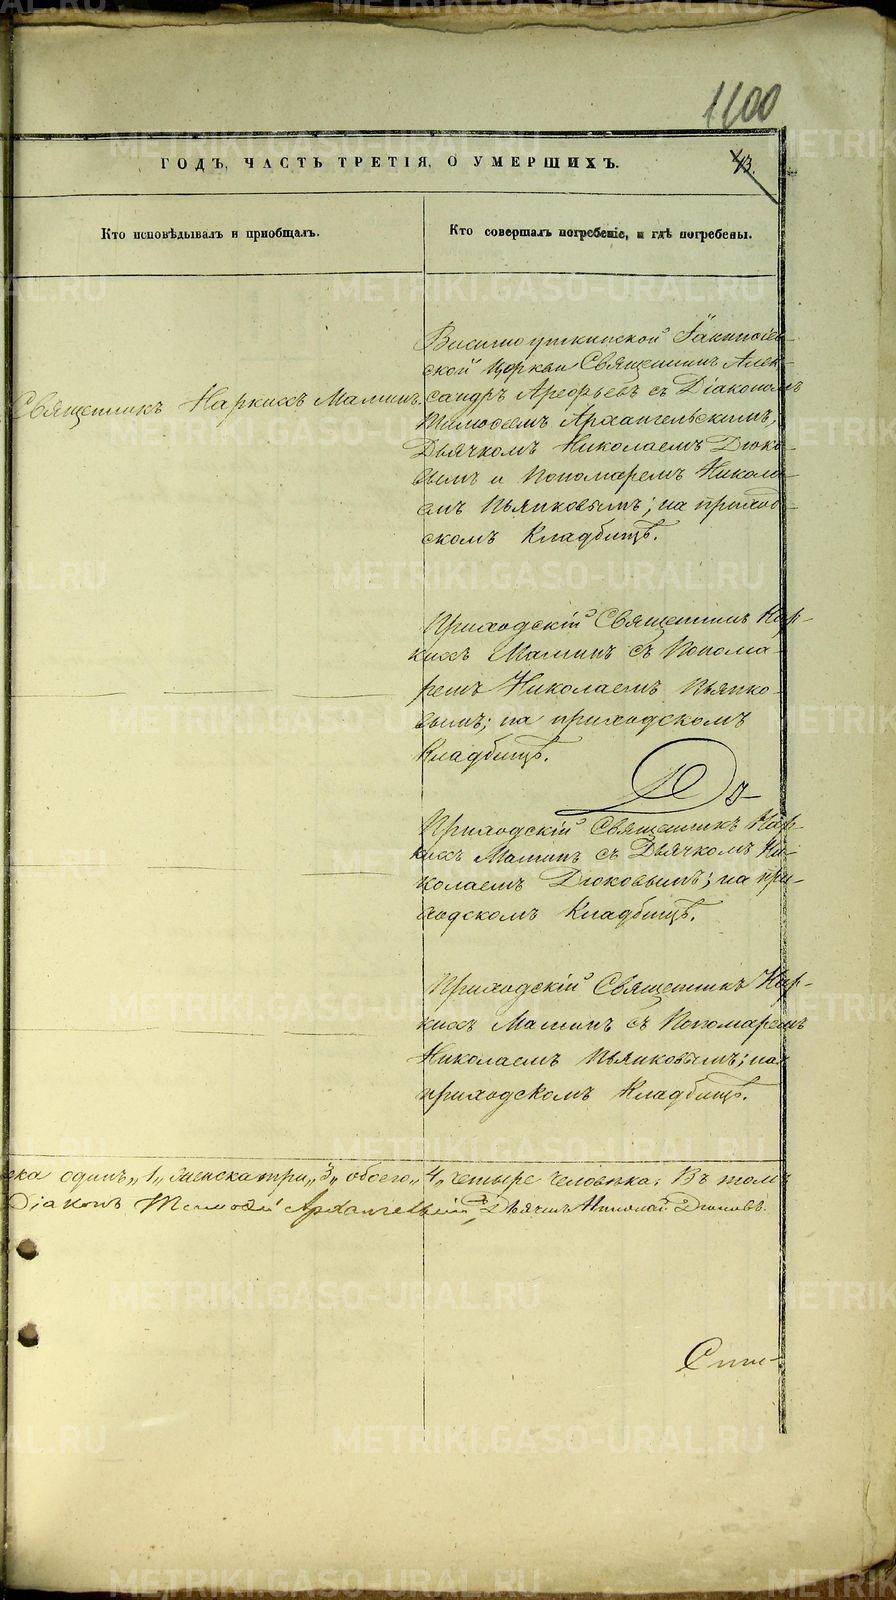 1100
ГОДЪ, ЧАСТЬ ТРЕТІЯ, О УМЕРШИХЪ.
43.
Кто исповѣдывалъ и пріобщалъ.
Кто совершалъ погребеніе, и гдѣ погребены.
Священникъ Наркисъ Маминъ.
Висимоуткинской Іакинѳіев-
ской Церкви Священникъ Алек-
сандръ Арефьевъ съ Діакономъ
Тимоѳеемъ Архангельскимъ,
Дьячкомъ Николаемъ Дюко-
вымъ и Пономаремъ Никола-
емъ Пьянковымъ; на приход-
скомъ Кладбищѣ.
Приходскій Священникъ Нар-
кисъ Маминъ съ Понома-
ремъ Николаемъ Пьянко-
вымъ; на приходскомъ
Кладбищѣ.
Приходскій Священникъ Нар-
кисъ Маминъ съ Дьячкомъ Ни-
колаемъ Дюковымъ; на при-
ходскомъ Кладбищѣ.
Приходскій Священникъ Нар-
кисъ Маминъ съ Пономаремъ
Николаемъ Пьянковымъ; на
приходскомъ Кладбищѣ.
ска одинъ „1„ женска три „3„ обоего „4„ четыре человѣка. Въ томъ
Діаконъ Тимоѳей Архангельскій, Дьячекъ Николай Дюковъ.
METRIKI.GASO-URAL.RU